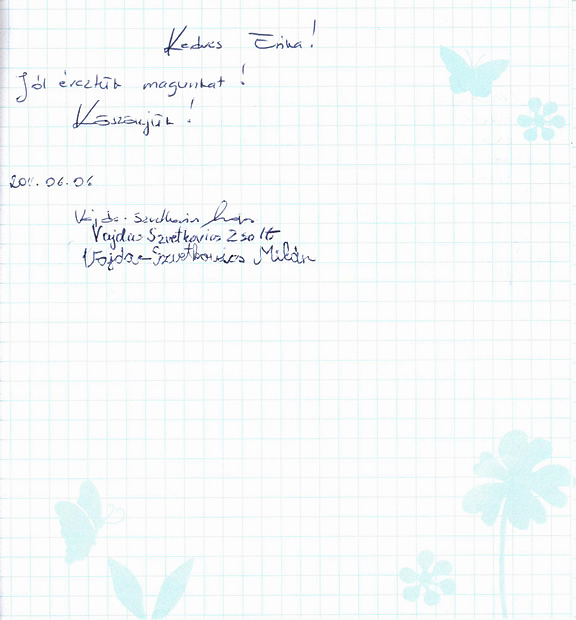 Kedves Erika!
Jól éreztük magunkat!
Köszönjük!
2011.06.06
Vajda-Szvetkovics
Vajda-Szvetkovics Zsolt
Vajda-Szvetkovics Milán